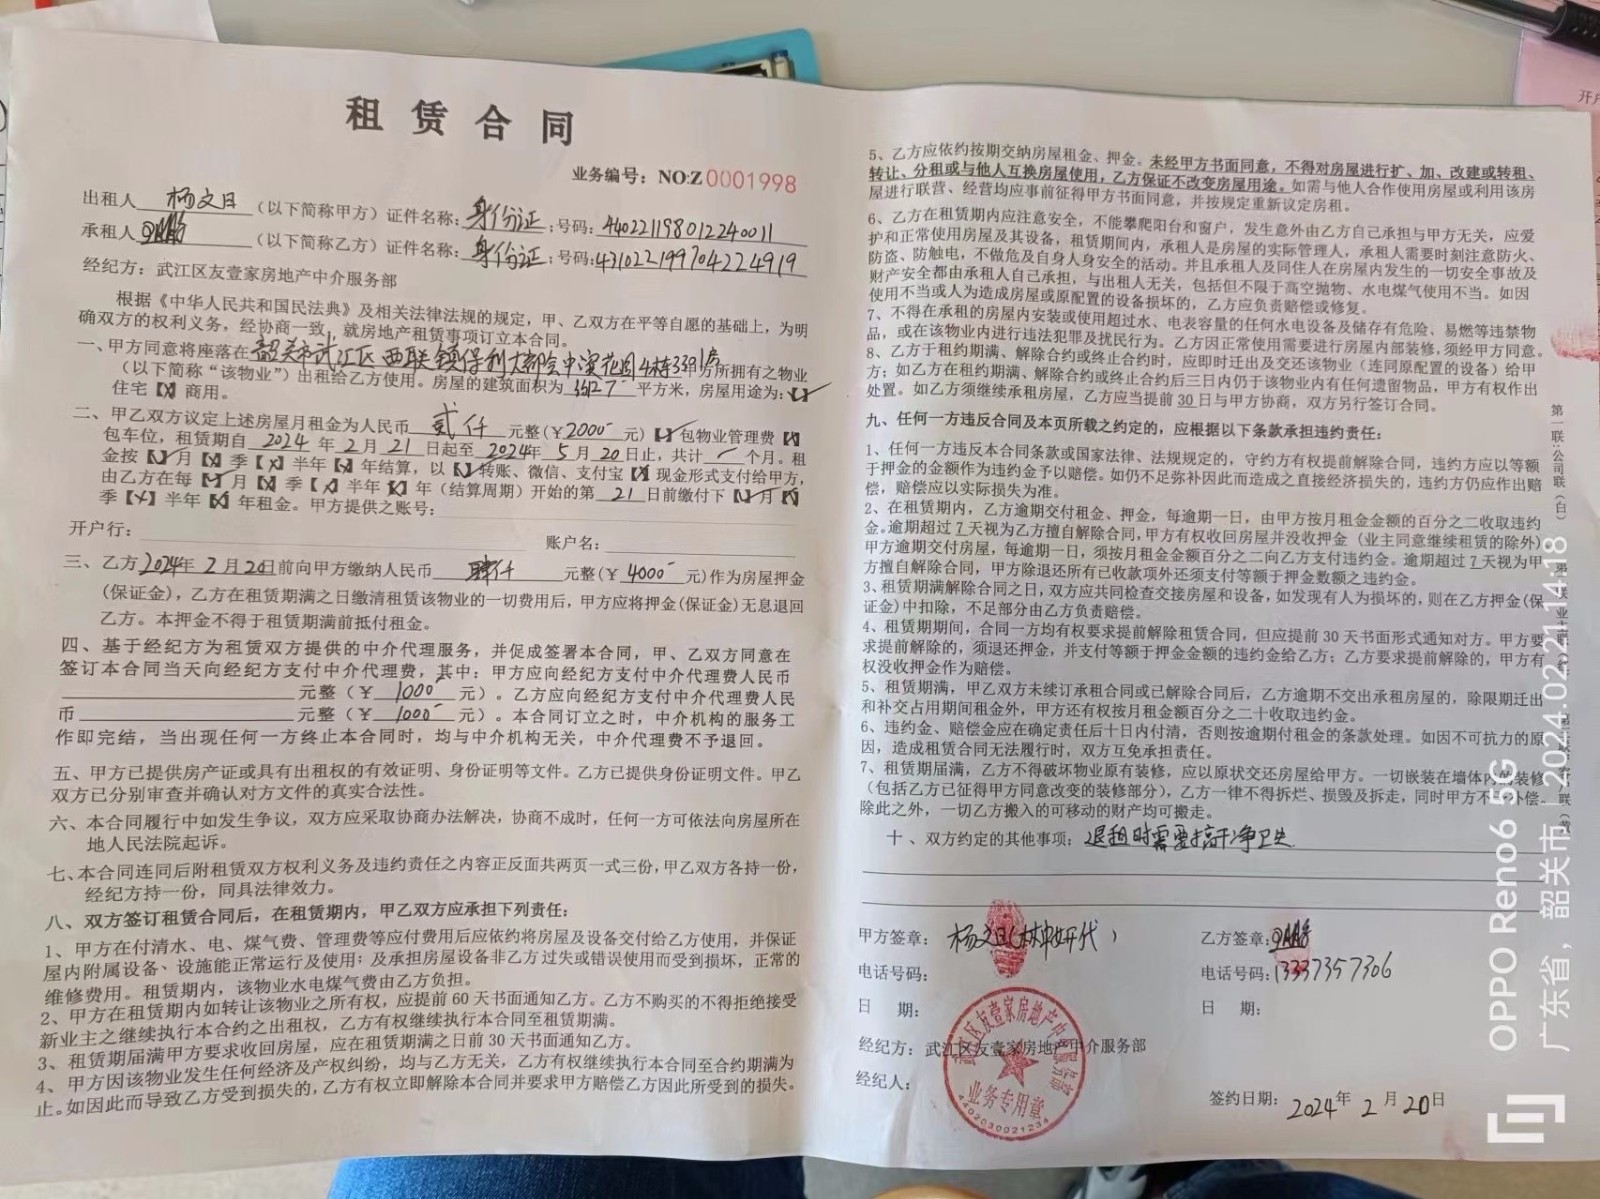 租赁合同
业务编号：NO:Z0001998
出租人 杨文日 （以下简称甲方）证件名称：身份证；号码：440221198012240011
承租人 （以下简称乙方）证件名称：身份证；号码：431022199704224919
经纪方：武江区友壹家房地产中介服务部
根据《中华人民共和国民法典》及相关法律法规的规定，甲、乙双方在平等自愿的基础上，为明
确双方的权利义务，经协商一致，就房地产租赁事项订立本合同。
一、甲方同意将座落在韶关市武江区西联镇保利大都会中演花园4栋3301房 甲方所拥有之物业
（以下简称“该物业”）出租给乙方使用。房屋的建筑面积为 平方米，房屋用途为：【✓】
住宅【X】商用。
二、甲乙双方议定上述房屋月租金为人民币 贰仟 元整（￥2000 元）【✓】包物业管理费【X】
包车位，租赁期自 2024 年 2 月 21 日起至 2024年 5 月 20 日止，共计 / 个月。租
金按【✓】月【X】季【X】半年【X】年结算，以【✓】转账、微信、支付宝【X】现金形式支付给甲方，
由乙方在每【✓】月【X】季【X】半年【X】年（结算周期）开始的第 21 日前缴付下【✓】月【X】
季【X】半年【X】年租金。甲方提供之账号：
开户行： 账户名：
三、乙方2024年 2 月 20日前向甲方缴纳人民币 肆仟 元整（￥ 4000 元）作为房屋押金
（保证金），乙方在租赁期满之日缴清租赁该物业的一切费用后，甲方应将押金（保证金）无息退回
乙方。本押金不得于租赁期满前抵付租金。
四、基于经纪方为租赁双方提供的中介代理服务，并促成签署本合同，甲、乙双方同意在
签订本合同当天向经纪方支付中介代理费，其中：甲方应向经纪方支付中介代理费人民币
元整（￥ 1000 元）。乙方应向经纪方支付中介代理费人民
币 元整（￥ 1000 元）。本合同订立之时，中介机构的服务工
作即完结，当出现任何一方终止本合同时，均与中介机构无关，中介代理费不予退回。
五、甲方已提供房产证或具有出租权的有效证明、身份证明等文件。乙方已提供身份证明文件。甲乙
双方已分别审查并确认对方文件的真实合法性。
六、本合同履行中如发生争议，双方应采取协商办法解决，协商不成时，任何一方可依法向房屋所在
地人民法院起诉。
七、本合同连同后附租赁双方权利义务及违约责任之内容正反面共两页一式三份，甲乙双方各持一份，
经纪方持一份，同具法律效力。
八、双方签订租赁合同后，在租赁期内，甲乙双方应承担下列责任：
1、甲方在付清水、电、煤气费、管理费等应付费用后应依约将房屋及设备交付给乙方使用，并保证
屋内附属设备、设施能正常运行及使用；及承担房屋设备非乙方过失或错误使用而受到损坏，正常的
维修费用。租赁期内，该物业水电煤气费由乙方负担。
2、甲方在租赁期内如转让该物业之所有权，应提前 60 天书面通知乙方。乙方不购买的不得拒绝接受
新业主之继续执行本合约之出租权，乙方有权继续执行本合同至租赁期满。
3、租赁期届满甲方要求收回房屋，应在租赁期满之日前 30 天书面通知乙方。
4、甲方因该物业发生任何经济及产权纠纷，均与乙方无关，乙方有权继续执行本合同至合约期满为
止。如因此而导致乙方受到损失的，乙方有权立即解除本合同并要求甲方赔偿乙方因此所受到的损失。
5、乙方应依约按期交纳房屋租金、押金。未经甲方书面同意，不得对房屋进行扩、加、改建或转租、
转让、分租或与他人互换房屋使用，乙方保证不改变房屋用途。如需与他人合作使用房屋或利用该房
屋进行联营、经营均应事前征得甲方书面同意，并按规定重新议定房租。
6、乙方在租赁期内应注意安全，不能攀爬阳台和窗户，发生意外由乙方自己承担与甲方无关，应爱
护和正常使用房屋及其设备，租赁期间内，承租人是房屋的实际管理人，承租人需要时刻注意防火、
防盗、防触电，不做危及自身人身安全的活动。并且承租人及同住人在房屋内发生的一切安全事故及
财产安全都由承租人自己承担，与出租人无关，包括但不限于高空抛物、水电煤气使用不当。如因
使用不当或人为造成房屋或原配置的设备损坏的，乙方应负责赔偿或修复。
7、不得在承租的房屋内安装或使用超过水、电表容量的任何水电设备及储存有危险、易燃等违禁物
品，或在该物业内进行违法犯罪及扰民行为。乙方因正常使用需要进行房屋内部装修，须经甲方同意。
8、乙方于租约期满、解除合约或终止合约时，应即时迁出及交还该物业（连同原配置的设备）给甲
方；如乙方在租约期满、解除合约或终止合约后三日内仍于该物业内有任何遗留物品，甲方有权作出
处置。如乙方须继续承租房屋，乙方应当提前 30 日与甲方协商，双方另行签订合同。
九、任何一方违反合同及本页所载之约定的，应根据以下条款承担违约责任：
1、任何一方违反本合同条款或国家法律、法规规定的，守约方有权提前解除合同，违约方应以等额
于押金的金额作为违约金予以赔偿。如仍不足弥补因此而造成之直接经济损失的，违约方仍应作出赔
偿，赔偿应以实际损失为准。
2、在租赁期内，乙方逾期交付租金、押金，每逾期一日，由甲方按月租金金额的百分之二收取违约
金。逾期超过 7 天视为乙方擅自解除合同，甲方有权收回房屋并没收押金（业主同意继续租赁的除外）
甲方逾期交付房屋，每逾期一日，须按月租金金额百分之二向乙方支付违约金。逾期超过 7 天视为甲
方擅自解除合同，甲方除退还所有已收款项外还须支付等额于押金数额之违约金。
3、租赁期满解除合同之日，双方应共同检查交接房屋和设备，如发现有人为损坏的，则在乙方押金（保
证金）中扣除，不足部分由乙方负责赔偿。
4、租赁期期间，合同一方均有权要求提前解除租赁合同，但应提前 30 天书面形式通知对方。甲方要
求提前解除的，须退还押金，并支付等额于押金金额的违约金给乙方；乙方要求提前解除的，甲方有
权没收押金作为赔偿。
5、租赁期满，甲乙双方未续订承租合同或已解除合同后，乙方逾期不交出承租房屋的，除限期迁出
和补交占用期间租金外，甲方还有权按月租金额百分之二十收取违约金。
6、违约金、赔偿金应在确定责任后十日内付清，否则按逾期付租金的条款处理。如因不可抗力的原
因，造成租赁合同无法履行时，双方互免承担责任。
7、租赁期届满，乙方不得破坏物业原有装修，应以原状交还房屋给甲方。一切嵌装在墙体内的装修
（包括乙方已征得甲方同意改变的装修部分），乙方一律不得拆烂、损毁及拆走，同时甲方不予补偿。
除此之外，一切乙方搬入的可移动的财产均可搬走。
十、双方约定的其他事项：退租时需要搞干净卫生
甲方签章： 杨文日(林 代） 乙方签章：
电话号码： 电话号码：13337357306
日 期： 日 期：
经纪方：武江区友壹家房地产中介服务部
经纪人：
签约日期：2024年 2 月 20日
武江区友壹家房地产中介服务部
业务专用章
4402030021234
第一联：公司联（白）
OPPO Reno6 5G
广东省，韶关市 | 2024.02.21 14:18
开户